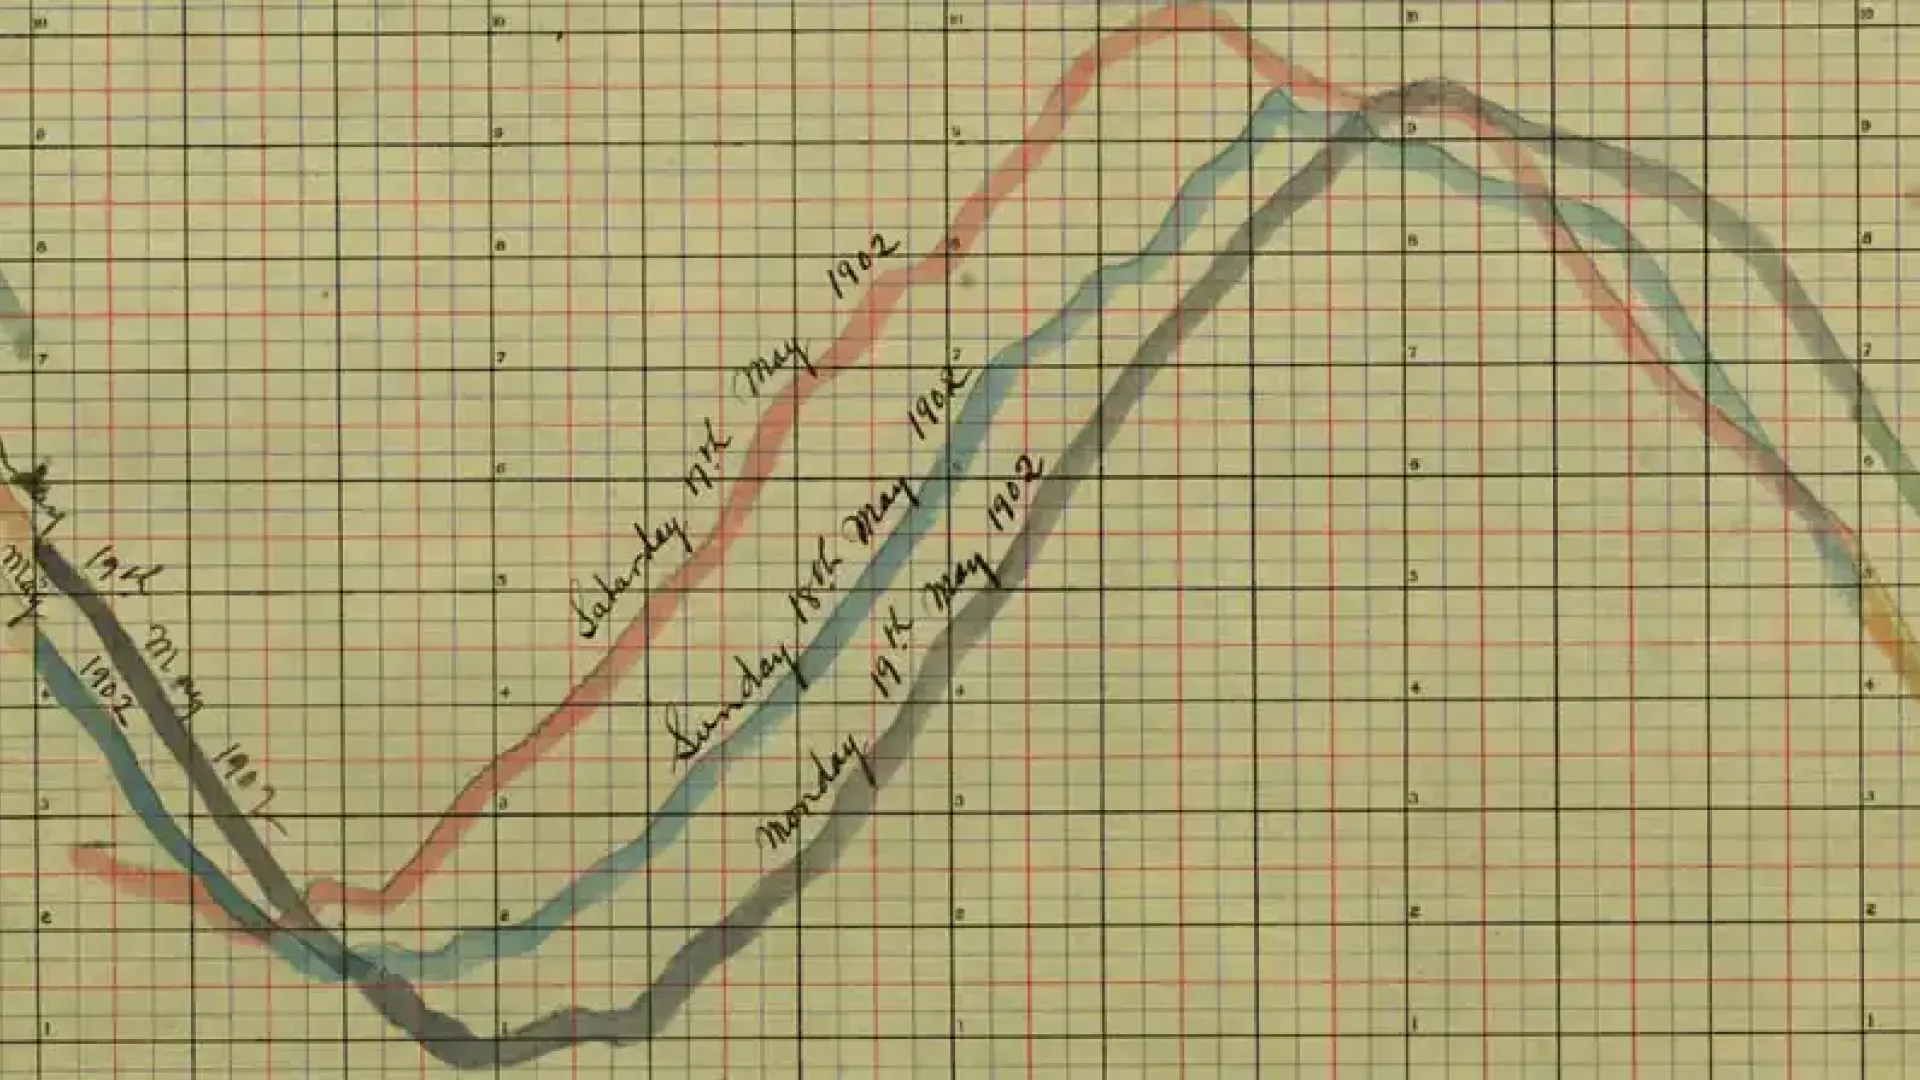 10 10 10 10 10
9 9 9 9 9
8 8 8 8 8
7 7 7 7 7
6 6 6 6
5 5
4 4 4 4 4
3 3 3 3 3
2 2 2 2 2
1 1 1 1 1
Saturday 17th May 1902
Sunday 18th May 1902
Monday 19th May 1902
19th May 1902
May 1902